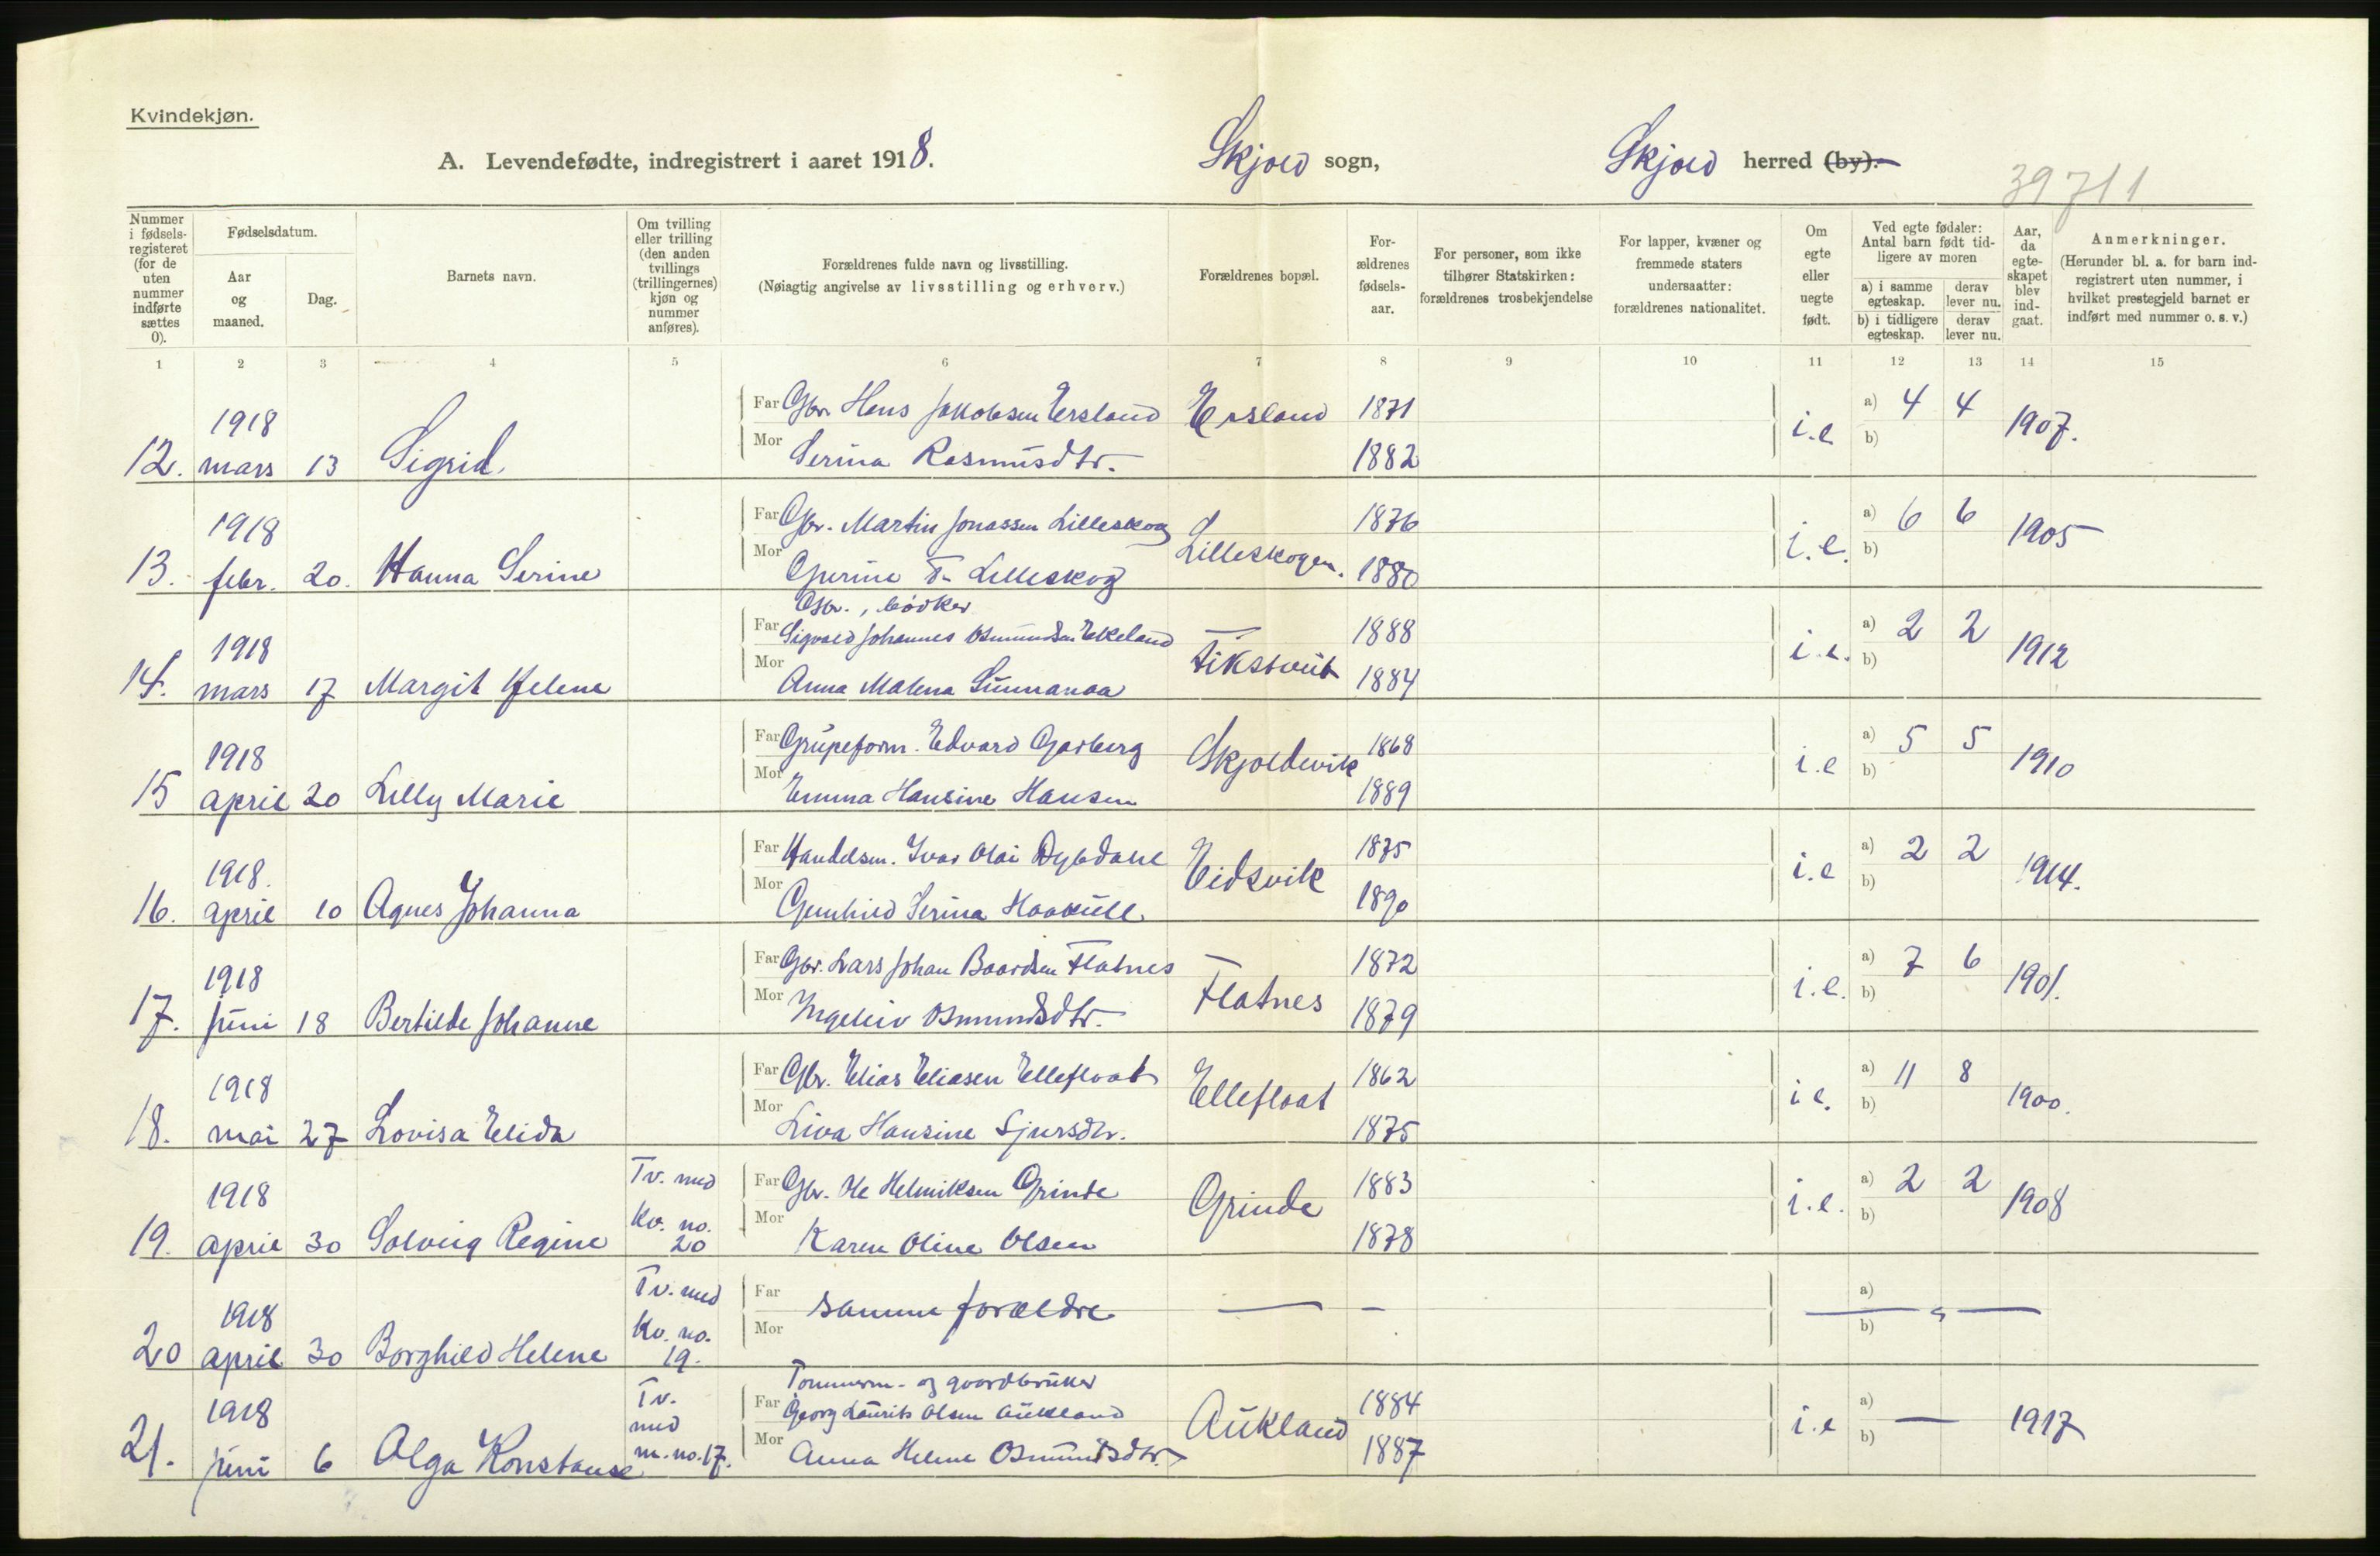 Kvindekjøn.
A. Levendefødte, indregistrert i aaret 1918. Skjold sogn, Skjold herred (by).
39711
Nummer i fødselsregisteret (for de uten nummer indførte sættes 0).
Fødselsdatum.
Aar og maaned.
Dag.
Barnets navn.
Om tvilling eller trilling (den anden tvillings (trillingernes) kjøn og nummer anføres).
Forældrenes fulde navn og livsstilling.
(Nøiagtig angivelse av livsstilling og erhverv.)
Forældrenes bopæl.
Forældrenes fødselsaar.
For personer, som ikke tilhører Statskirken: forældrenes trosbekjendelse
For lapper, kvæner og fremmede staters undersaatter: forældrenes nationalitet.
Om egte eller uegte født.
Ved egte fødsler: Antal barn født tidligere av moren
a) i samme egteskap. derav lever nu.
b) i tidligere egteskap. derav lever nu.
Aar, da egteskapet blev indgaat.
Anmerkninger.
(Herunder bl. a. for barn indregistrert uten nummer, i hvilket prestegjeld barnet er indført med nummer o. s. v.)
1 2 3 4 5 6 7 8 9 10 11 12 13 14 15
1918 Far Gbr. Hans Jakobsen Ersland Ersland 1871 a) 4 4
12. mars 13 Sigrid. Mor Serina Rasmusdtr. 1882 i.e b) 1907.
1918 Far Gbr. Martin Jonassen Lilleskog Lilleskogen. 1876 a) 6 6
13. febr. 20. Hanna Serine Mor Gurine T. Lilleskog 1880 i.e. b) 1905
Gbr., bødker
1918 Far Sigvald Johannes Osmundsen Ekeland Tikstveit 1888 a) 2 2
14. mars 17 Margit Helene Mor Anna Malena Sunnanaa 1884 i.e. b) 1912
1918 Far Grubeform. Edvard Garberg Skjoldevik 1868 a) 5 5
15 april 20 Lilly Marie Mor Emma Hansine Hansen 1889 i.e b) 1910
1918. Far Handelsm. Ivar Olai Dybdahl Eidsvik 1875 a) 2 2
16. april 10 Agnes Johanna Mor Gunhild Serina Haakull 1890 i.e b) 1914.
1918 Far Gbr. Lars Johan Baardsen Flatnes Flatnes 1872 a) 7 6
17. juni 18 Bertilde Johanne Mor Ingeleiv Osmundsdtr. 1879 i.e. b) 1901.
1918 Far Gbr. Elias Eliasen Ellefloat Ellefloat 1862 a) 11 8
18. mai 27 Lovisa Elida Mor Liva Hansine Sjursdtr. 1875 i e. b) 1900.
1918 Tv. med Far Gbr. Ole Helmiksen Grinde Grinde 1883 a) 2 2
19. april 30 Solveig Regine Kv. no. 20 Mor Karen Oline Olsen 1878 i.e. b) 1908
1918 Tv. med Far samme forældre — — a) — „ —
20 april 30 Borghild Helene Kv. no. 19. Mor b)
Tømmerm- og gaardbruker
1918 Tv. med Far Georg Laurits Olsen Aukland Aukland 1884 a) —
21. juni 6 Olga Konstanse m. no. 17. Mor Anna Helene Osmundsdtr. 1887 i.e b) 1917